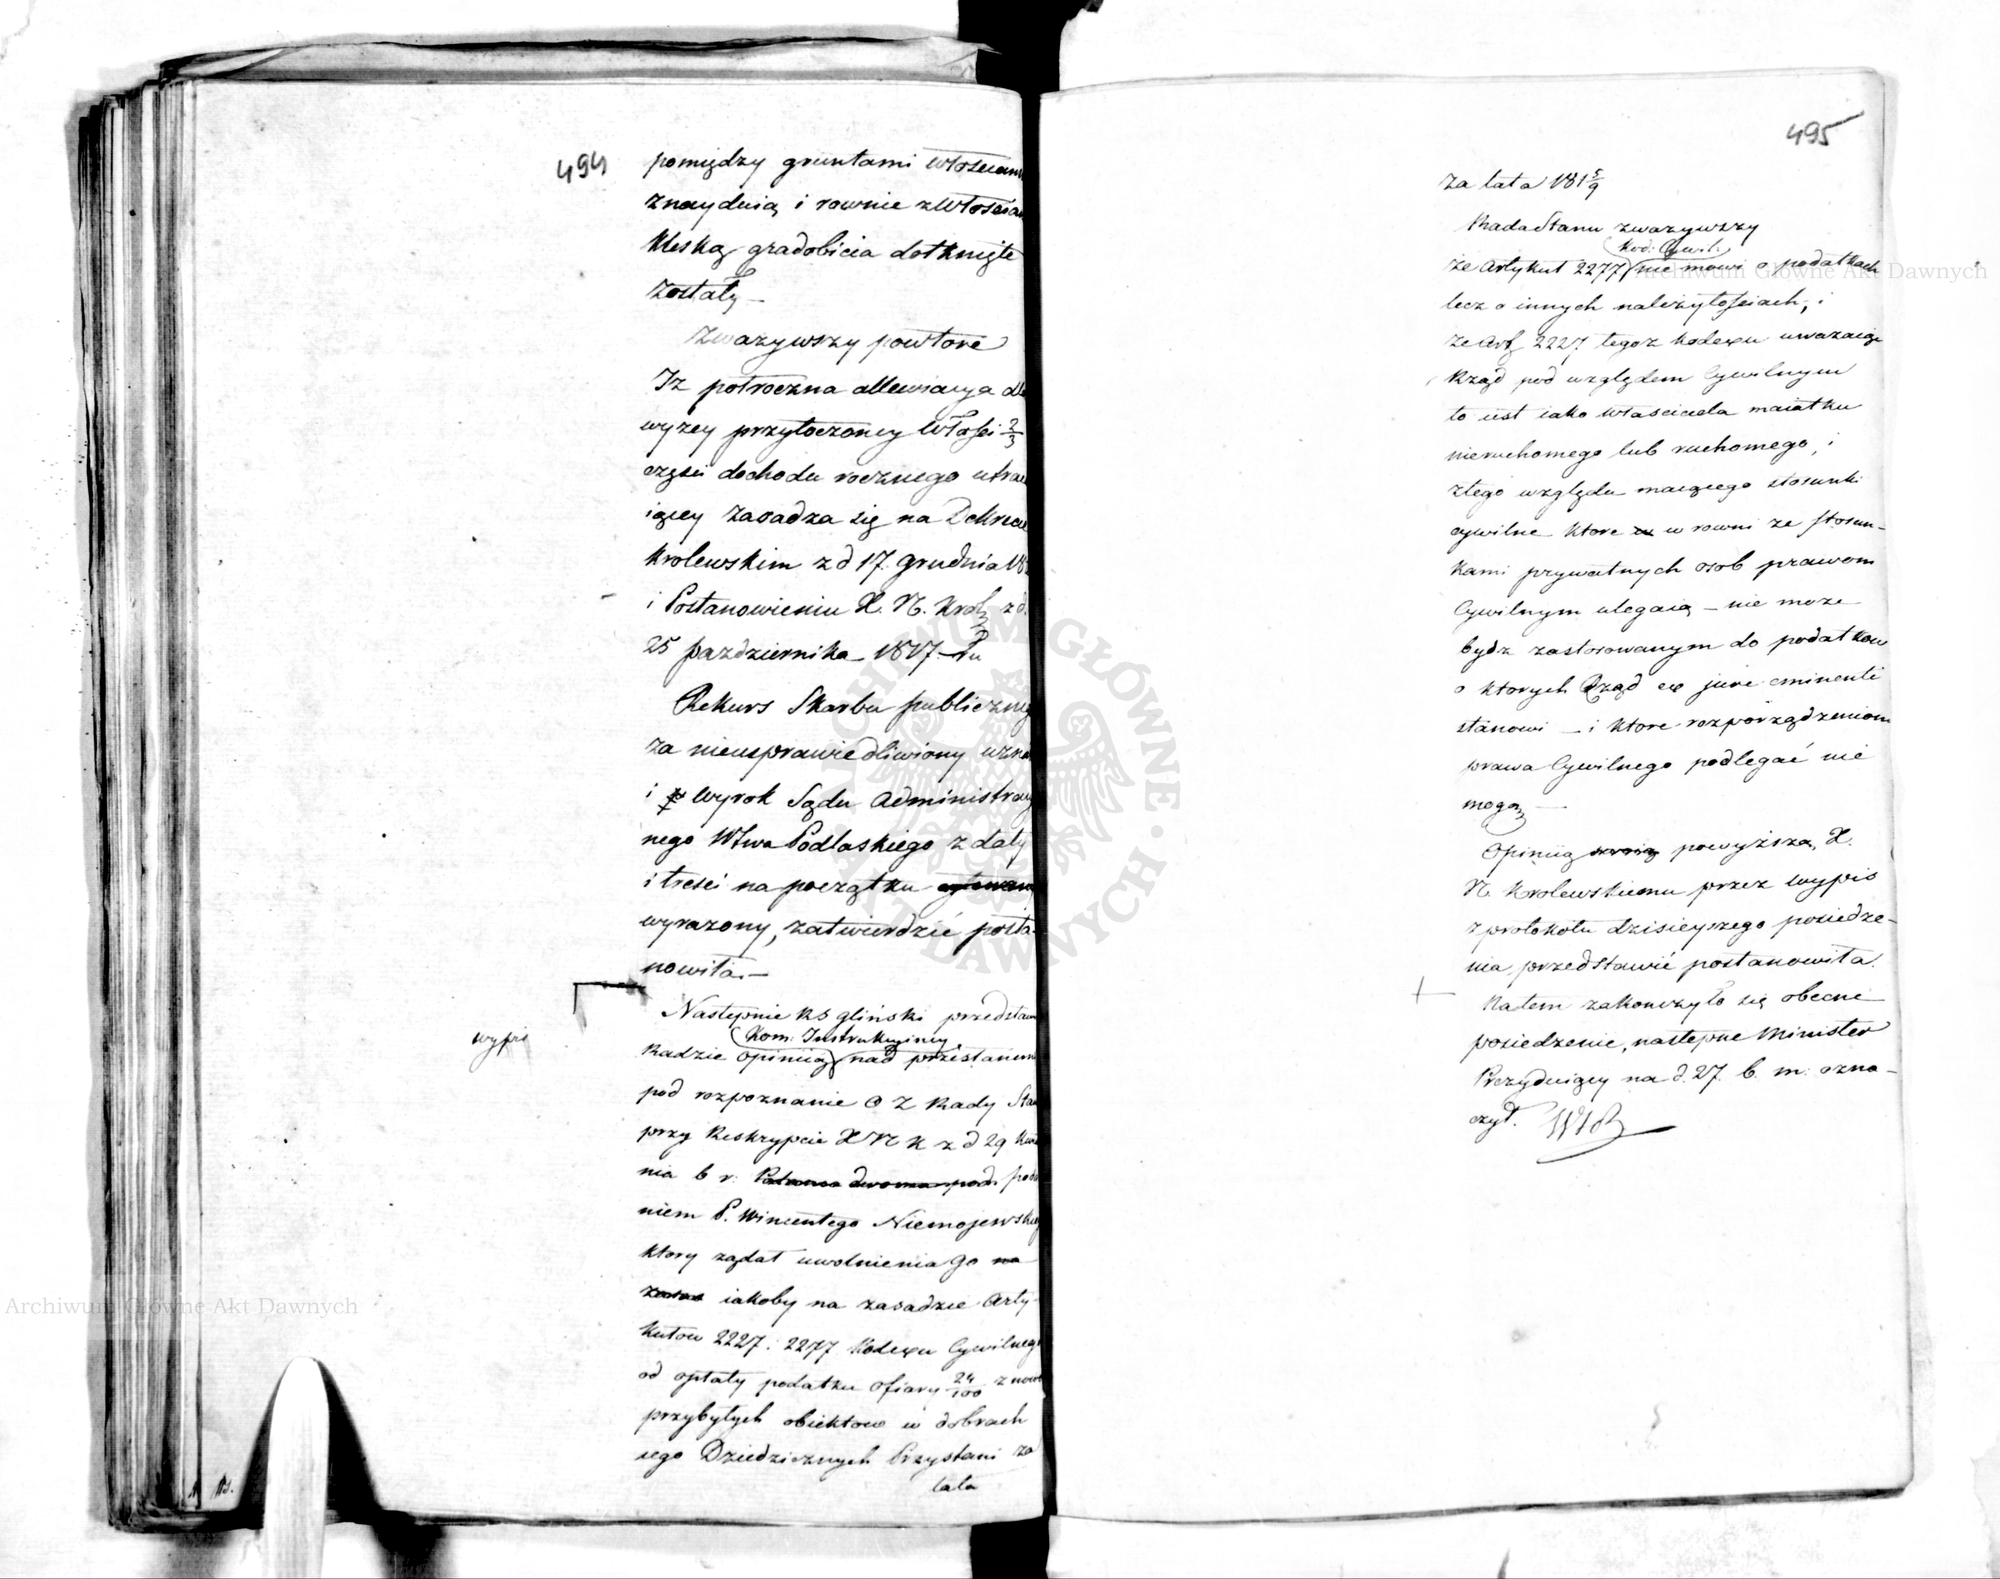 494
pomiędzy gruntami Włościan
znayduią i rownie z Włościan
klęską gradobicia dotknięte
zostały –
Zważywszy powtore
Iż połroczna allewiacya
wyżey przytoczoney Włości 2/3
części dochodu rocznego utrac
iącey zasadza się na Dekrecie
Krolewskim z d 17. grudnia 18
i Postanowieniu X. N. Krol. z d.
25 października 1817. –
Rekurs Skarbu publiczneg
za nieusprawiedliwiony uzna
i Wyrok Sądu Administracy
nego Wtwa Podlaskiego z daty
i treści na początku
wyrażony, zatwierdzić posta-
nowiła. –
Następnie RS Gliński przedstaw
Kom: Instrukcyiney
wypis
Radzie opiniią nad przesłanem
pod rozpoznanie Rady Sta
przy Reskrypcie X N K z d 29 Kwie
nia b r. poda
niem P. Wincentego Niemojewskieg
ktory żądał uwolnienia go na
iakoby na zasadzie Arty-
kułow 2227. 2277 Kodexu Cywilnego
od opłaty podatku ofiary 24/100 z nowo
przybyłych obiektow w dobrach
iego Dziedzicznych Przystani za
lata
495
Za lata 181 5/9
Rada Stanu zważywszy
Kod: Cywil:
że Artykuł 2277 nie mowi o podatkach
lecz o innych należytościach, i
że Art 2227 tegoż Kodexu uważaiąc
Rząd pod względem Cywilnym
to iest iako właściciela maiątku
nieruchomego lub ruchomego, i
z tego względu maiącego stosunki
cywilne ktore w rowni ze stosun-
kami prywatnych osob prawom
Cywilnym ulegaią – nie może
bydź zastosowanym do podatkow
o ktorych Rząd ex jure eminenti
stanowi – i ktore rozporządzeniom
prawa Cywilnego podlegać nie
mogą –
Opiniią powyższą, X.
N. Krolewskiemu przez wypis
z protokołu dzisieyszego posiedze-
nia przedstawić postanowiła.
Na tem zakończyło się obecne
posiedzenie, następne Minister
Prezyduiący na d. 27. b. m. ozna-
czył.
Archiwum Główne Akt Dawnych
Archiwum Główne Akt Dawnych
ARCHIWUM GŁÓWNE AKT DAWNYCH